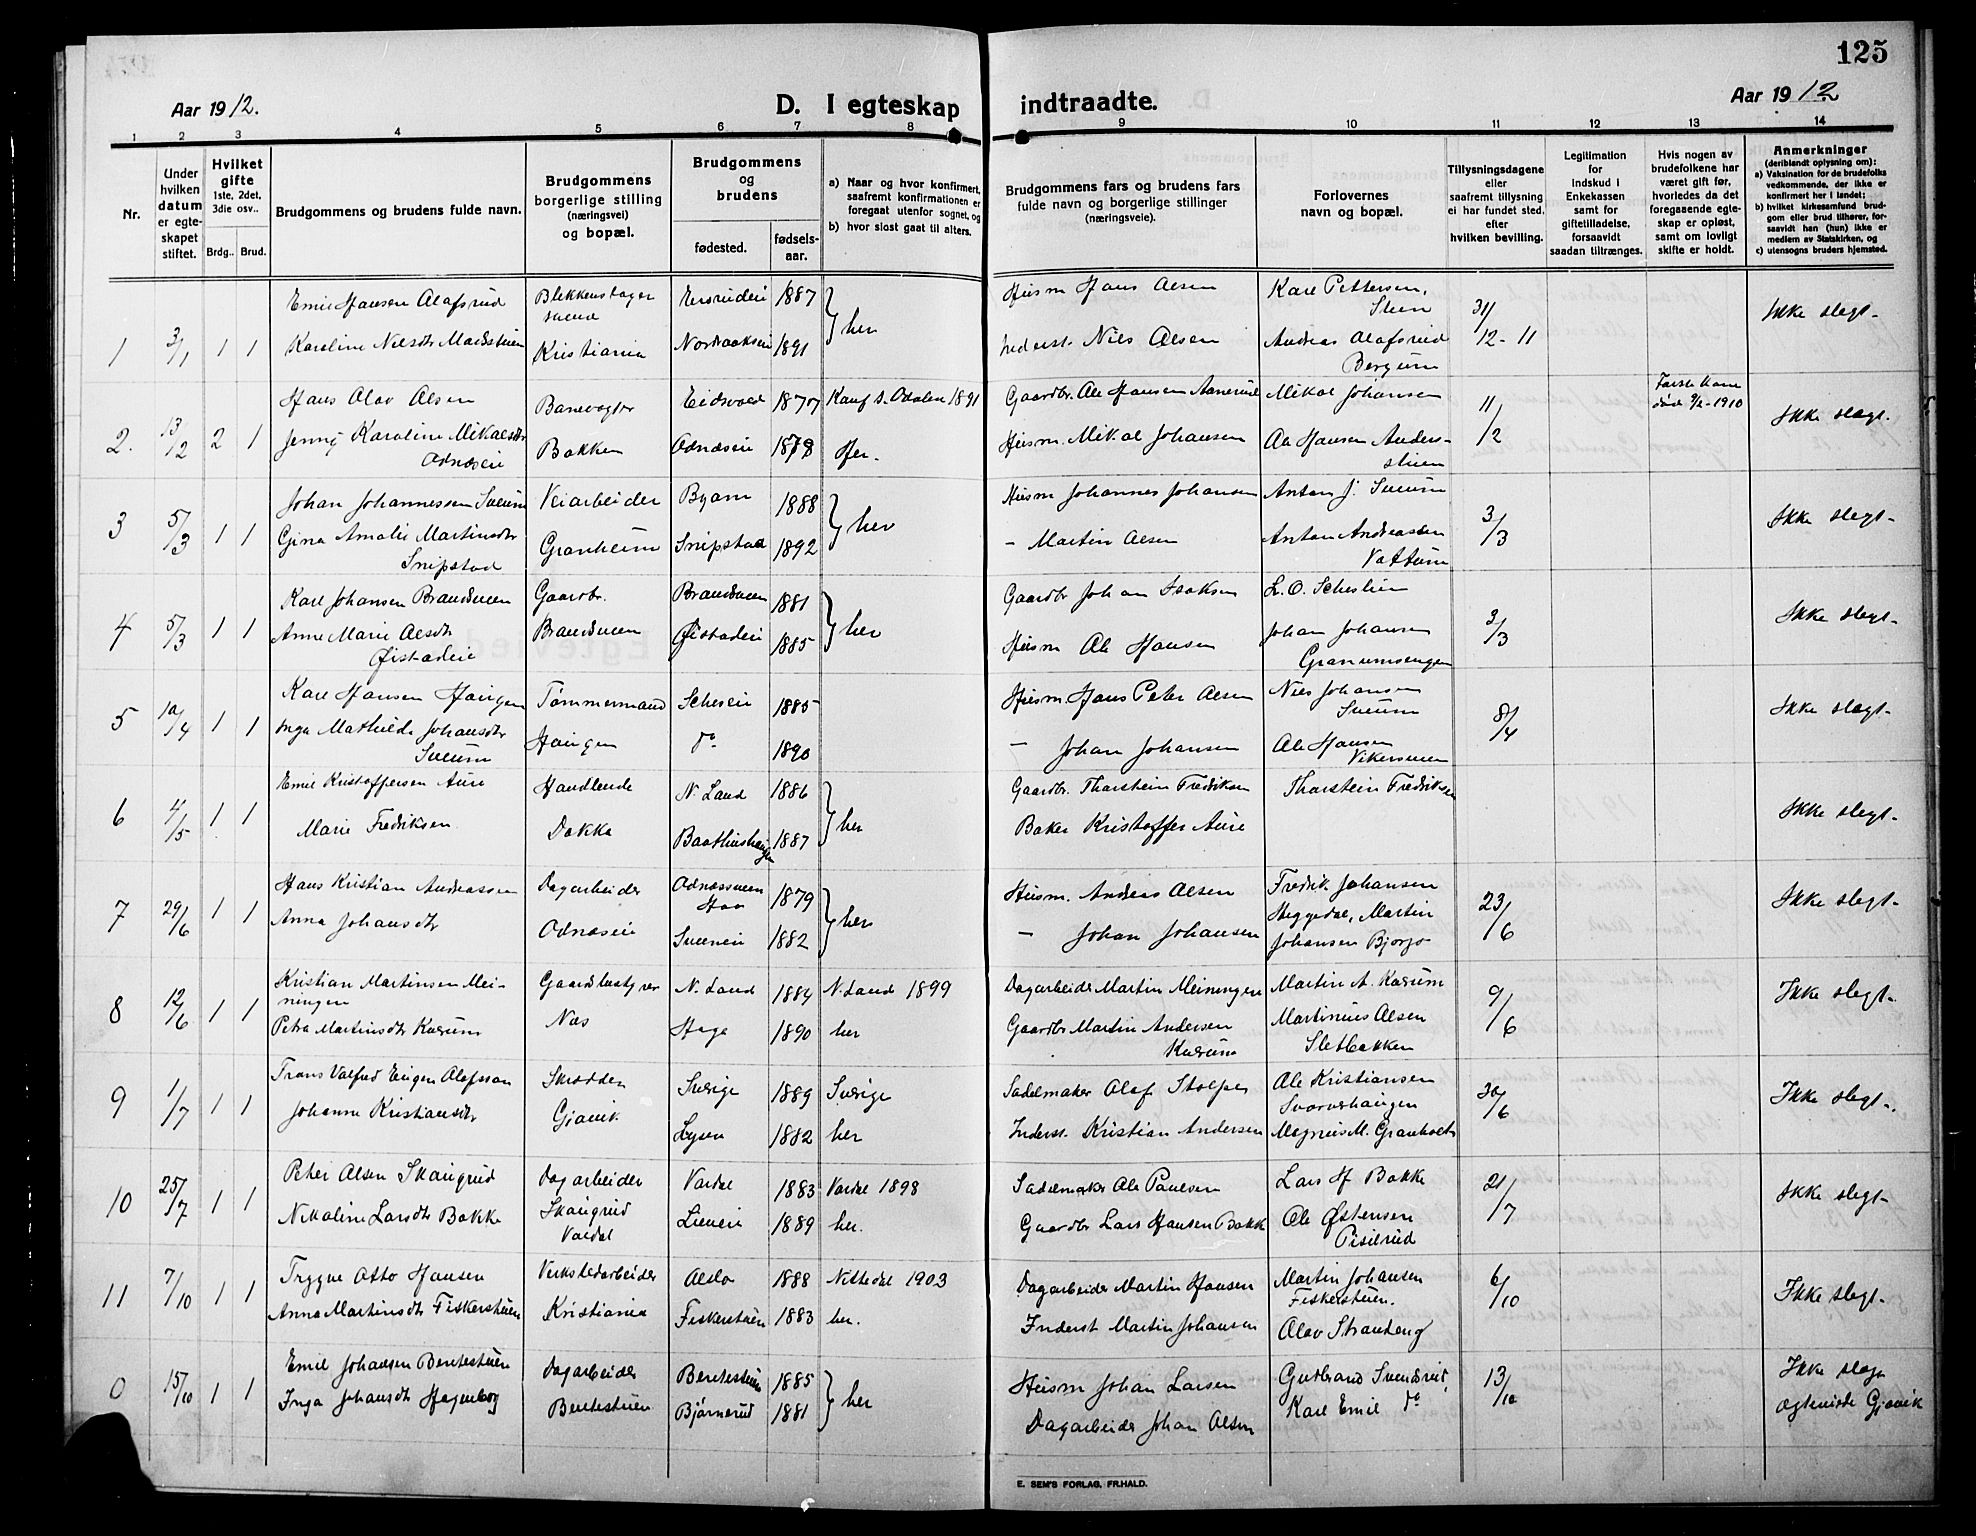 125
Aar 1912.
D. I egteskap indtraadte.
Aar 1912
1 2 3 4 5 6 7 8 9 10 11 12 13 14
Nr.
Under
hvilken
datum
er egte-
skapet
stiftet.
Hvilket
gifte
1ste, 2det,
3die osv..
Brdg.. Brud.
Brudgommens og brudens fulde navn.
Brudgommens
borgerlige stilling
(næringsvei)
og bopæl.
Brudgommens
og
brudens
fødested.
fødsels-
aar.
a) Naar og hvor konfirmert,
saafremt konfirmationen er
foregaat utenfor sognet, og
b) hvor sidst gaat til alters.
Brudgommens fars og brudens fars
fulde navn og borgerlige stillinger
(næringsveie).
Forlovernes
navn og bopæl.
Tillysningsdagene
eller
saafremt tillysning
ei har fundet sted,
efter
hvilken bevilling.
Legitimation
for
Indskud i
Enkekassen
samt for
giftetilladelse,
forsaavidt
saadan tiltrænges.
Hvis nogen av
brudefolkene har
været gift før,
hvorledes da det
foregaaende egte-
skap er opløst,
samt om lovligt
skifte er holdt.
Anmerkninger
(deriblandt oplysning om):
a) Vaksination for de brudefolks
vedkommende, der ikke er
konfirmert her i landet;
b) hvilket kirkesamfund brud-
gom eller brud tilhører, for-
saavidt han (hun) ikke er
medlem av Statskirken, og
c) utensogns bruders hjemsted.
1 3/1 1 1
Emil Hansen Olafsrud
Karoline Nilsdtr
Kristiania
1887
1891
her
Husm Hans Olsen
Inderst. Niels Olsen
Karl Pettersen,
Steen
Andreas Olafsrud
Bergum
31/12-11
Ikke slegt-
2. 13/2 2 1
Hans Olav Olsen
Jenny Karoline Mikalsdtr
Odnæseie
Banevogter
Bakken
Eidsvold 1877
Odnæseie 1878
Konf s. Odalen 1891
Her.
Gaardbr. Ole Hansen
Husm. Mikal Johansen
Mikal Johansen
Ole Hansen Anders-
stuen
11/2
Første kone
døde 9/2-1910
Ikke slegt.
3 5/3 1 1
Johan Johannessen Sveum
Gina Amalie Martinsdtr
Snipstad
Veiarbeider
Granheim
1888
Snipstad 1892
her
Husm Johannes Johansen
- Martin Olsen
Anton J. Sveum
Anton Andreassen
Vattum
3/3
Ikke slegt-
4 5/3 1 1
Karl Johansen Brandsveen
Anne Marie Olsdtr
Øistadeie
Gaardbr.
Brandsveen
Brandsveen 1881
Øistadeie 1885
her
Gaardbr Johan Isaksen
Husm Ole Hansen
L. O. Scheslien
Johan Johansen
Granumsengen
3/3
Ikke slegt-
5 10/4 1 1
Karl Hansen Haugen
Inga Mathilde Johansdtr
Sveum
Tømmermand
Haugen
1885
do 1890
Husm. Hans Peter Olsen
- Johan Johansen
Niels Johansen
Sveum
Ole Hansen
Vikersveen
8/4
Ikke slegt-
6 4/5 1 1
Emil Kristoffersen Aure
Marie Fredriksen
Handlende
Dokka
N. Land 1886
1887
her
Gaardbr. Thorstein Fredriksen
Baker Kristoffer Aure
Thorstein Fredriksen
Ikke slegt-
7 29/6 1 1
Hans Kristian Andreassen
Anna Johansdtr
Dagarbeider
Odnæseie
Odnæssveen
1879
1882
her
Husm. Andreas Olsen
- Johan Johansen
Fredrik Johansen
Heggedal, Martin
Johansen Bjorjo
23/6
Ikke slegt-
8 12/6 1 1
Kristian Martinsen Mei-
ningen
Petra Martinsdtr
Gaardbestyrer
Næs
N. Land 1884
Hage 1890
N. Land 1899
her
Dagarbeider Martin Meiningen
Gaardbr Martin Andersen
Martinius Olsen
Sletbakken
9/6
Ikke slegt-
9 1/7 1 1
Frans Valfred Eugen Olofsson
Johanne Kristiansdtr
Skrædder
Gjøvik
Sverige 1889
Lysen 1882
Sverige
her
Sadelmaker Olof Stolpe
Inderst. Kristian Andersen
Ole Kristiansen
Magnus M. Granholt
30/6
Ikke slegt-
10 25/7 1 1
Peter Olsen Skaugrud
Nikoline Larsdtr Bakke
Dagarbeider
Skaugrud
Vardal
Vardal 1883
1889
Vardal 1898
her.
Sadelmaker Ole Paulsen
Gaardbr Lars Hansen Bakke
Lars H Bakke
Ole Østensen
Pisilrud
21/7
Ikke slegt-
11 7/10 1 1
Trygve Otto Hansen
Anna Martinsdtr Fiskerstuen
Verkstedarbeider
Kristiania
Oslo 1888
Fiskerstuen 1883
Nittedal 1903
her.
Dagarbeider Martin Hansen
Inderst Martin Johansen
Martin Johansen
Fiskerstuen.
Olav Strandeng
6/10
Ikke slegt.
0 15/10 1 1
Emil Johansen Bentestuen
Inga Johansdtr Hagenbog
Dagarbeider
Bentestuen
Bentestuen 1885
Bjørnerud 1881
her
Husm Johan Larsen
Dagarbeider Johan Olsen
Gudbrand Svendsrud,
Karl Emil do
13/10
Ikke slegt
Egteviede Gjøvik
E. SEM'S FORLAG, FR.HALD.